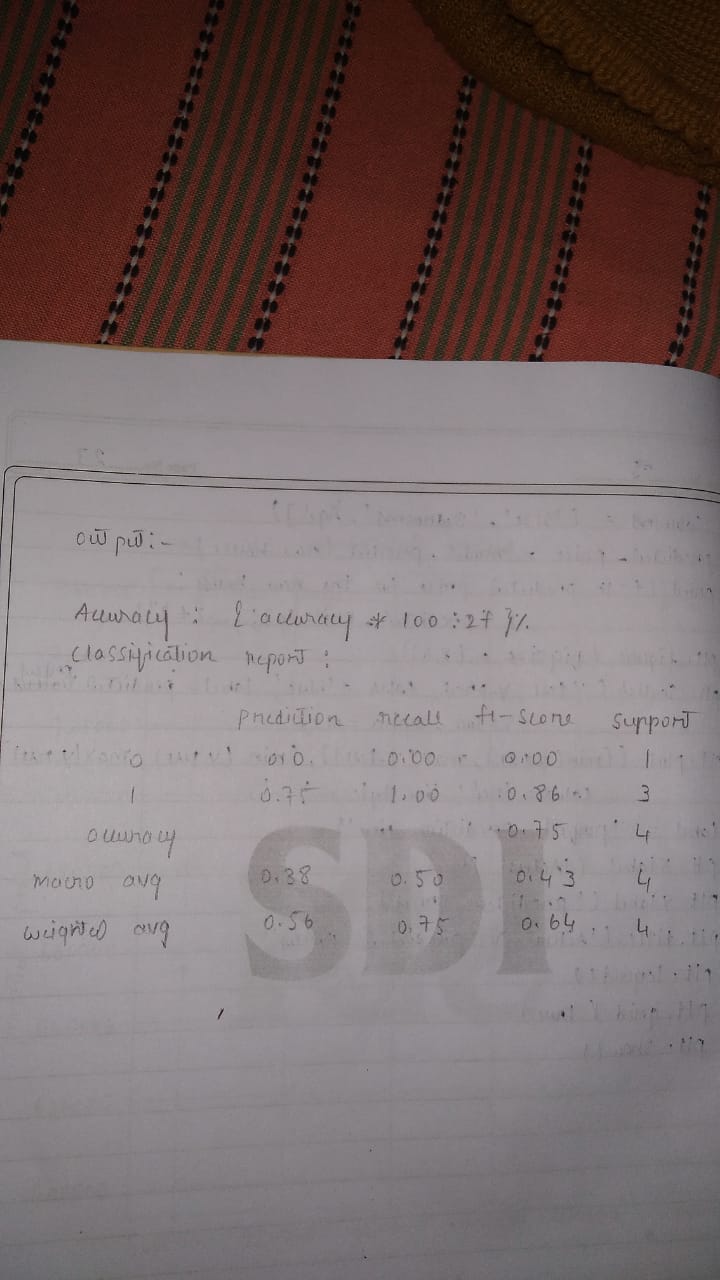 output:-
Accuracy : {accuracy * 100 : 2f }%
classification report :
prediction recall f1-score support
0 0.0 0.00 0.00 1
1 0.75 1.00 0.86 3
accuracy 0.75 4
macro avg 0.38 0.50 0.43 4
weighted avg 0.56 0.75 0.64 4
SDI